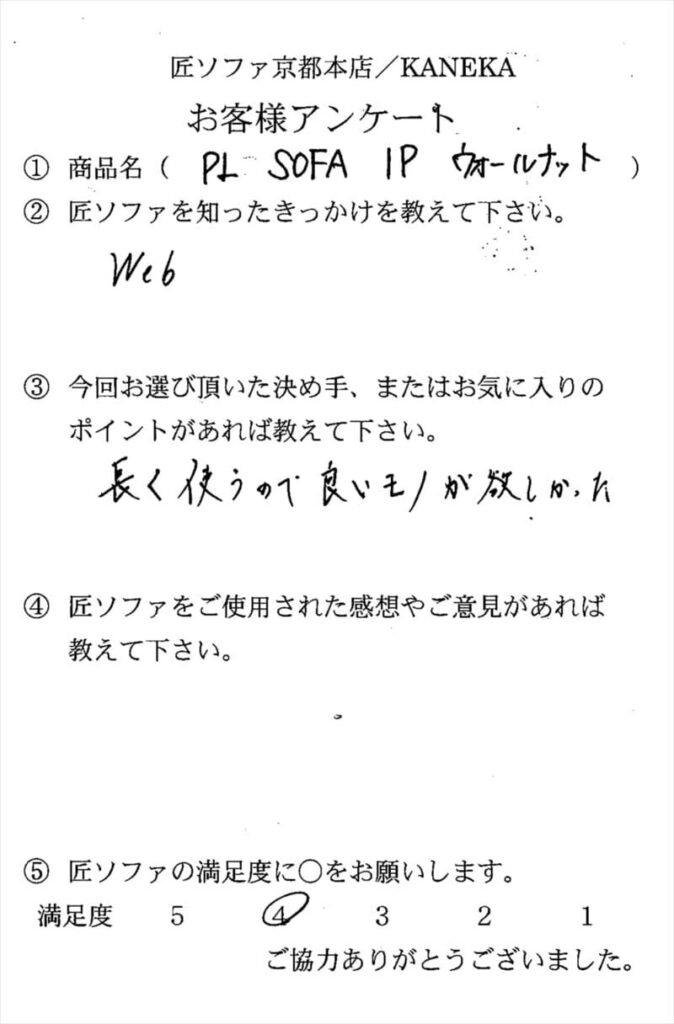 匠ソファ京都本店／KANEKA
お客様アンケート
① 商品名（ PL SOFA 1P ウォールナット ）
② 匠ソファを知ったきっかけを教えて下さい。
Web
③ 今回お選び頂いた決め手、またはお気に入りの
ポイントがあれば教えて下さい。
長く使うので良いモノが欲しかった
④ 匠ソファをご使用された感想やご意見があれば
教えて下さい。
⑤ 匠ソファの満足度に○をお願いします。
満足度 5 4 3 2 1
ご協力ありがとうございました。